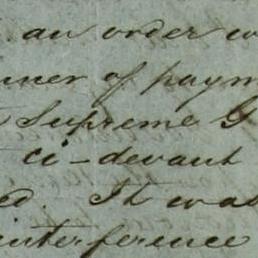 an order w
nner of paym
Supreme G
ci-devant
ed. It was
interference